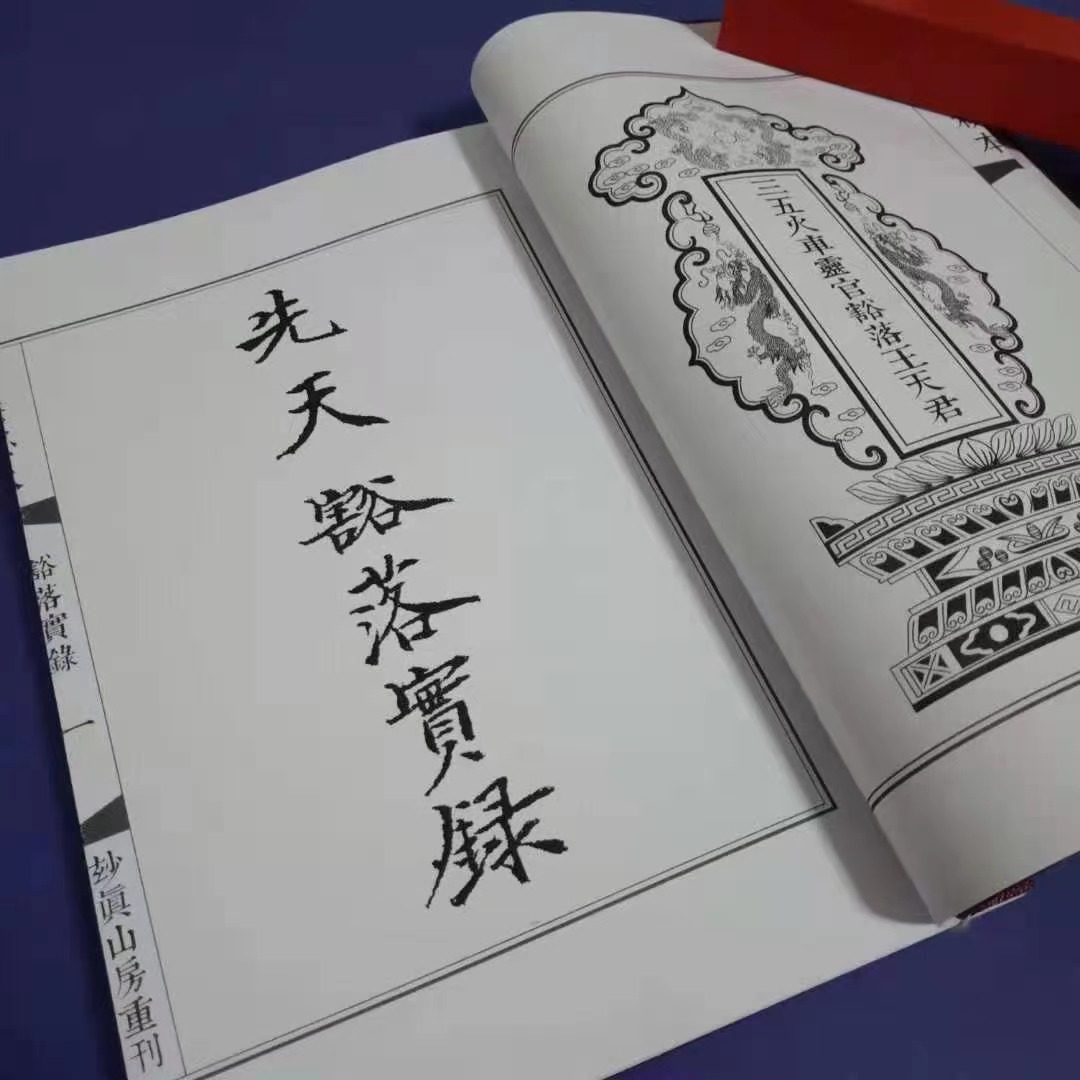 三五火車靈官豁落王天君
先天豁落實錄
豁落實錄
一
玅眞山房重刊
本